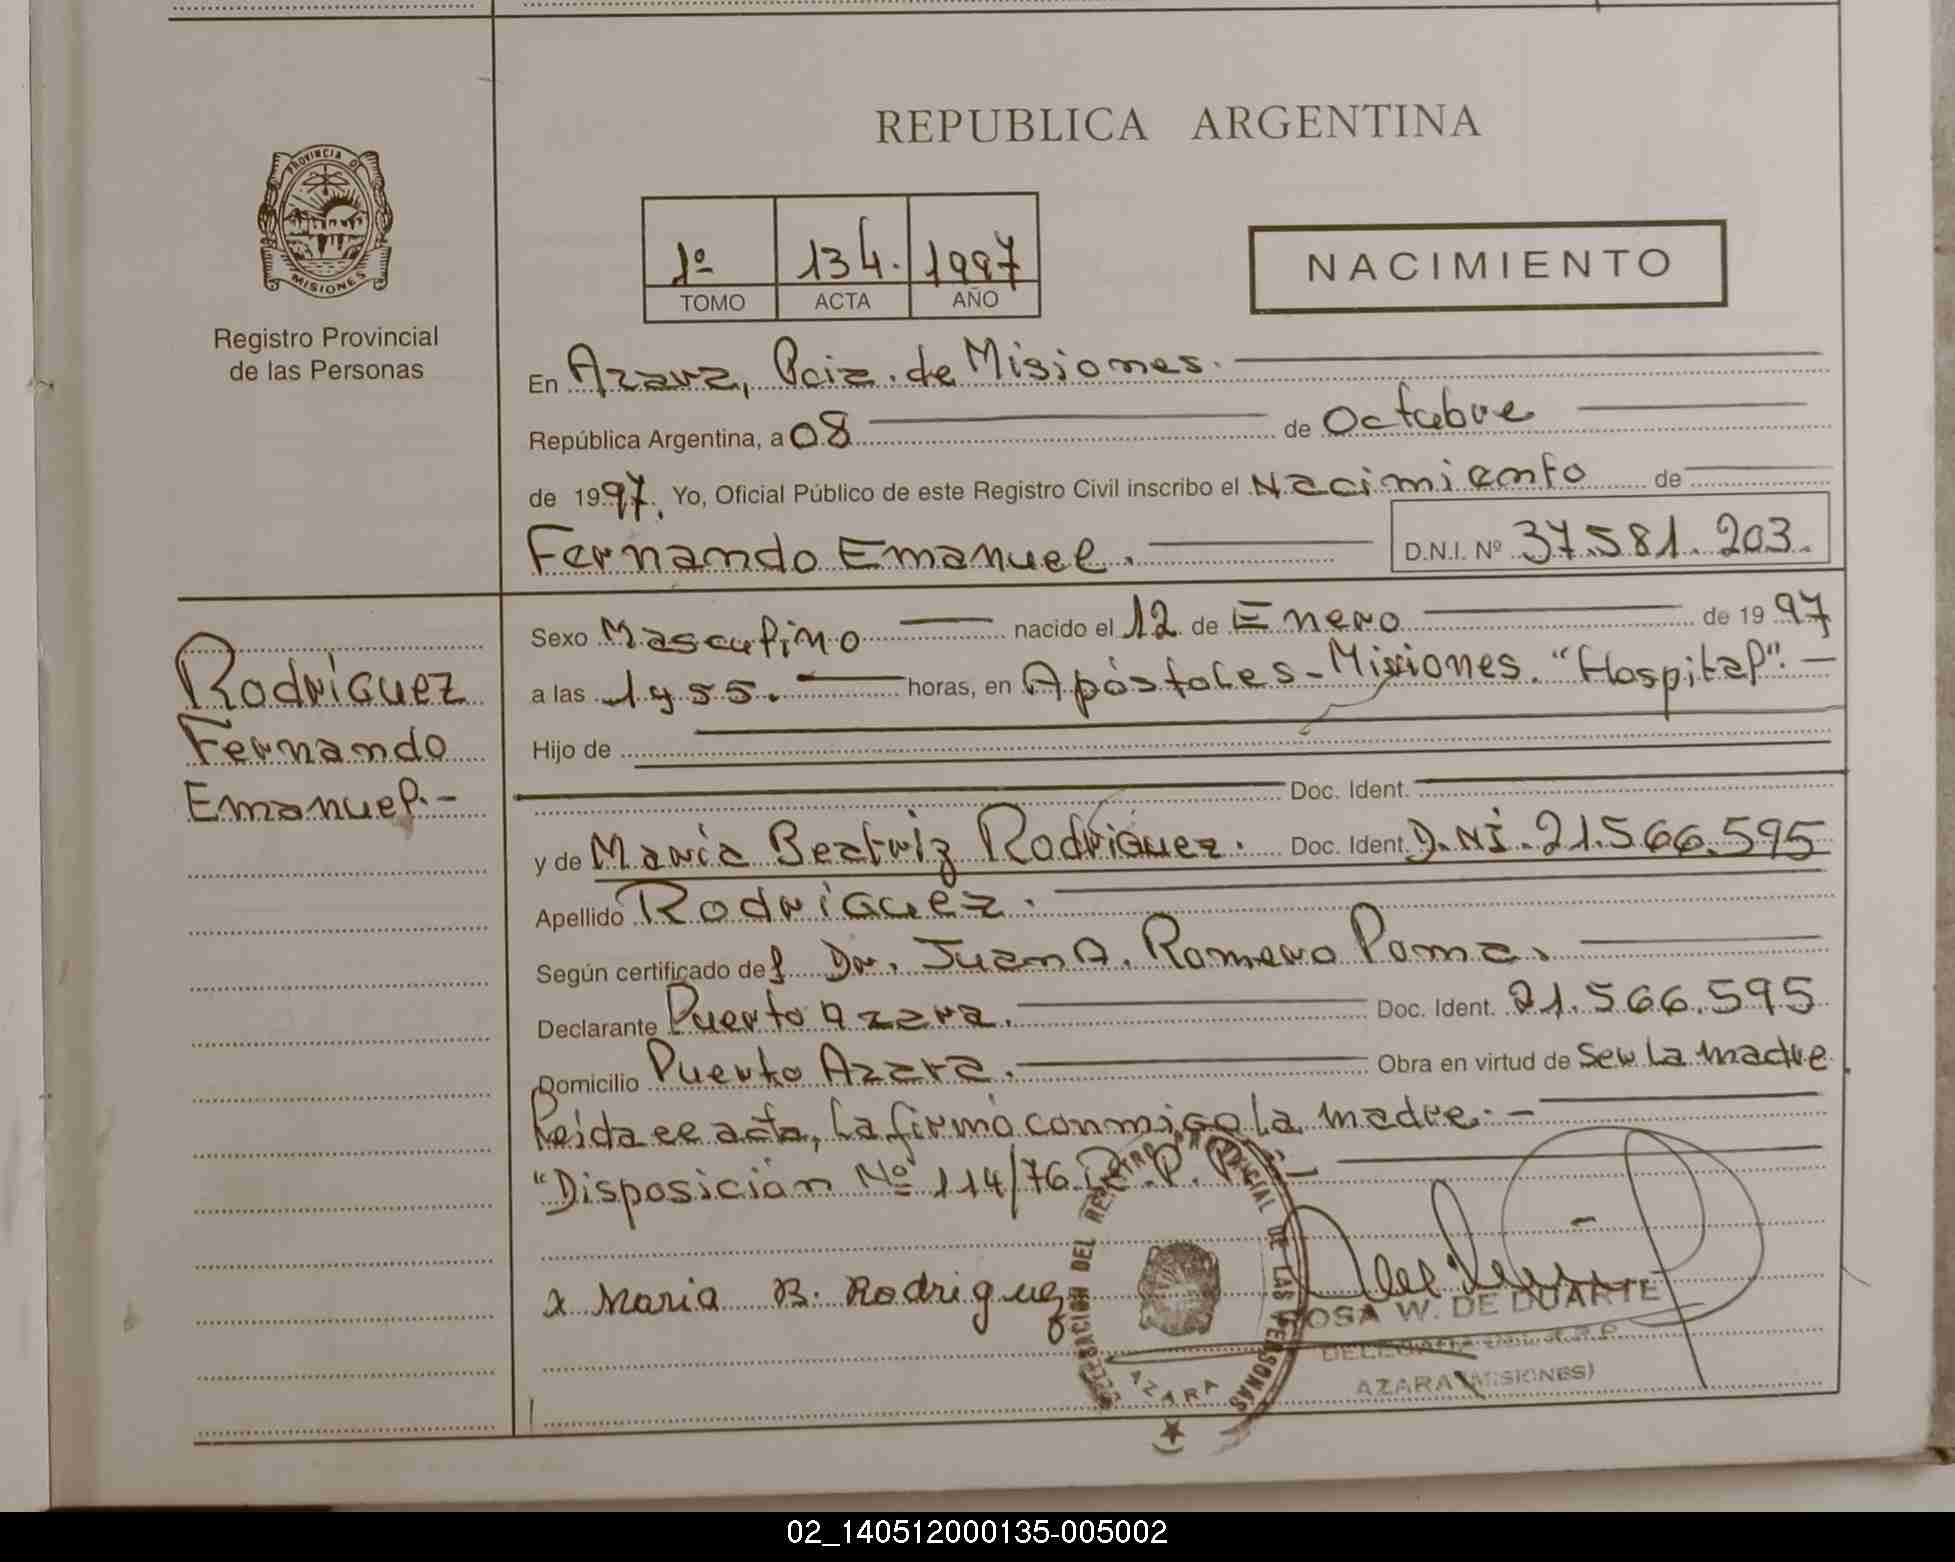 REPUBLICA ARGENTINA
PROVINCIA DE
MISIONES
Registro Provincial
de las Personas
1º 134. 1997
TOMO ACTA AÑO
NACIMIENTO
En Azara, Pcia. de Misiones.
República Argentina, a 08 de Octubre
de 1997. Yo, Oficial Público de este Registro Civil inscribo el Nacimiento de
Fernando Emanuel. D.N.I. Nº 37.581.203.
Rodríguez
Fernando
Emanuel.-
Sexo Masculino nacido el 12 de Enero de 1997
a las horas, en Apóstoles-Misiones. "Hospital".-
Hijo de
Doc. Ident.
y de María Beatriz Rodríguez. Doc. Ident. D.NI.21.566.595
Apellido Rodríguez.
Según certificado del Dr. Juan A. Romero Poma.
Declarante Puerto Azara. Doc. Ident. 21.566.595
Domicilio Puerto Azara. Obra en virtud de Ser la madre.
Leída el acta, la firmó conmigo la madre.-
"Disposición Nº 114/76
x Maria B. Rodriguez
DELEGACION DEL REGISTRO PROVINCIAL DE LAS PERSONAS
AZARA
ROSA W. DE DUARTE
DELEGADA
AZARA (MISIONES)
02_140512000135-005002